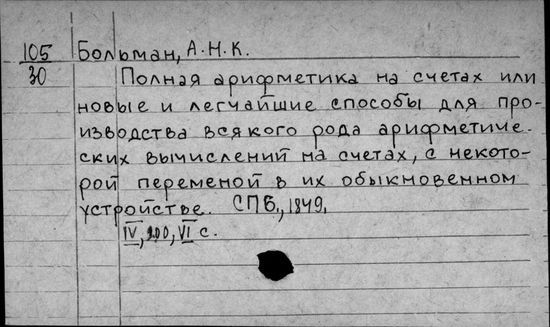 105 Больман, А.Н.К.
30 Полная арифметика на счетах или
новые и легчайшие способы для про-
изводства всякого рода арифметиче-
ских вычислений на счетах, с некото-
рой переменой в их обыкновенном
устройстве. СПб., 1849.
IV, 200, VI с.